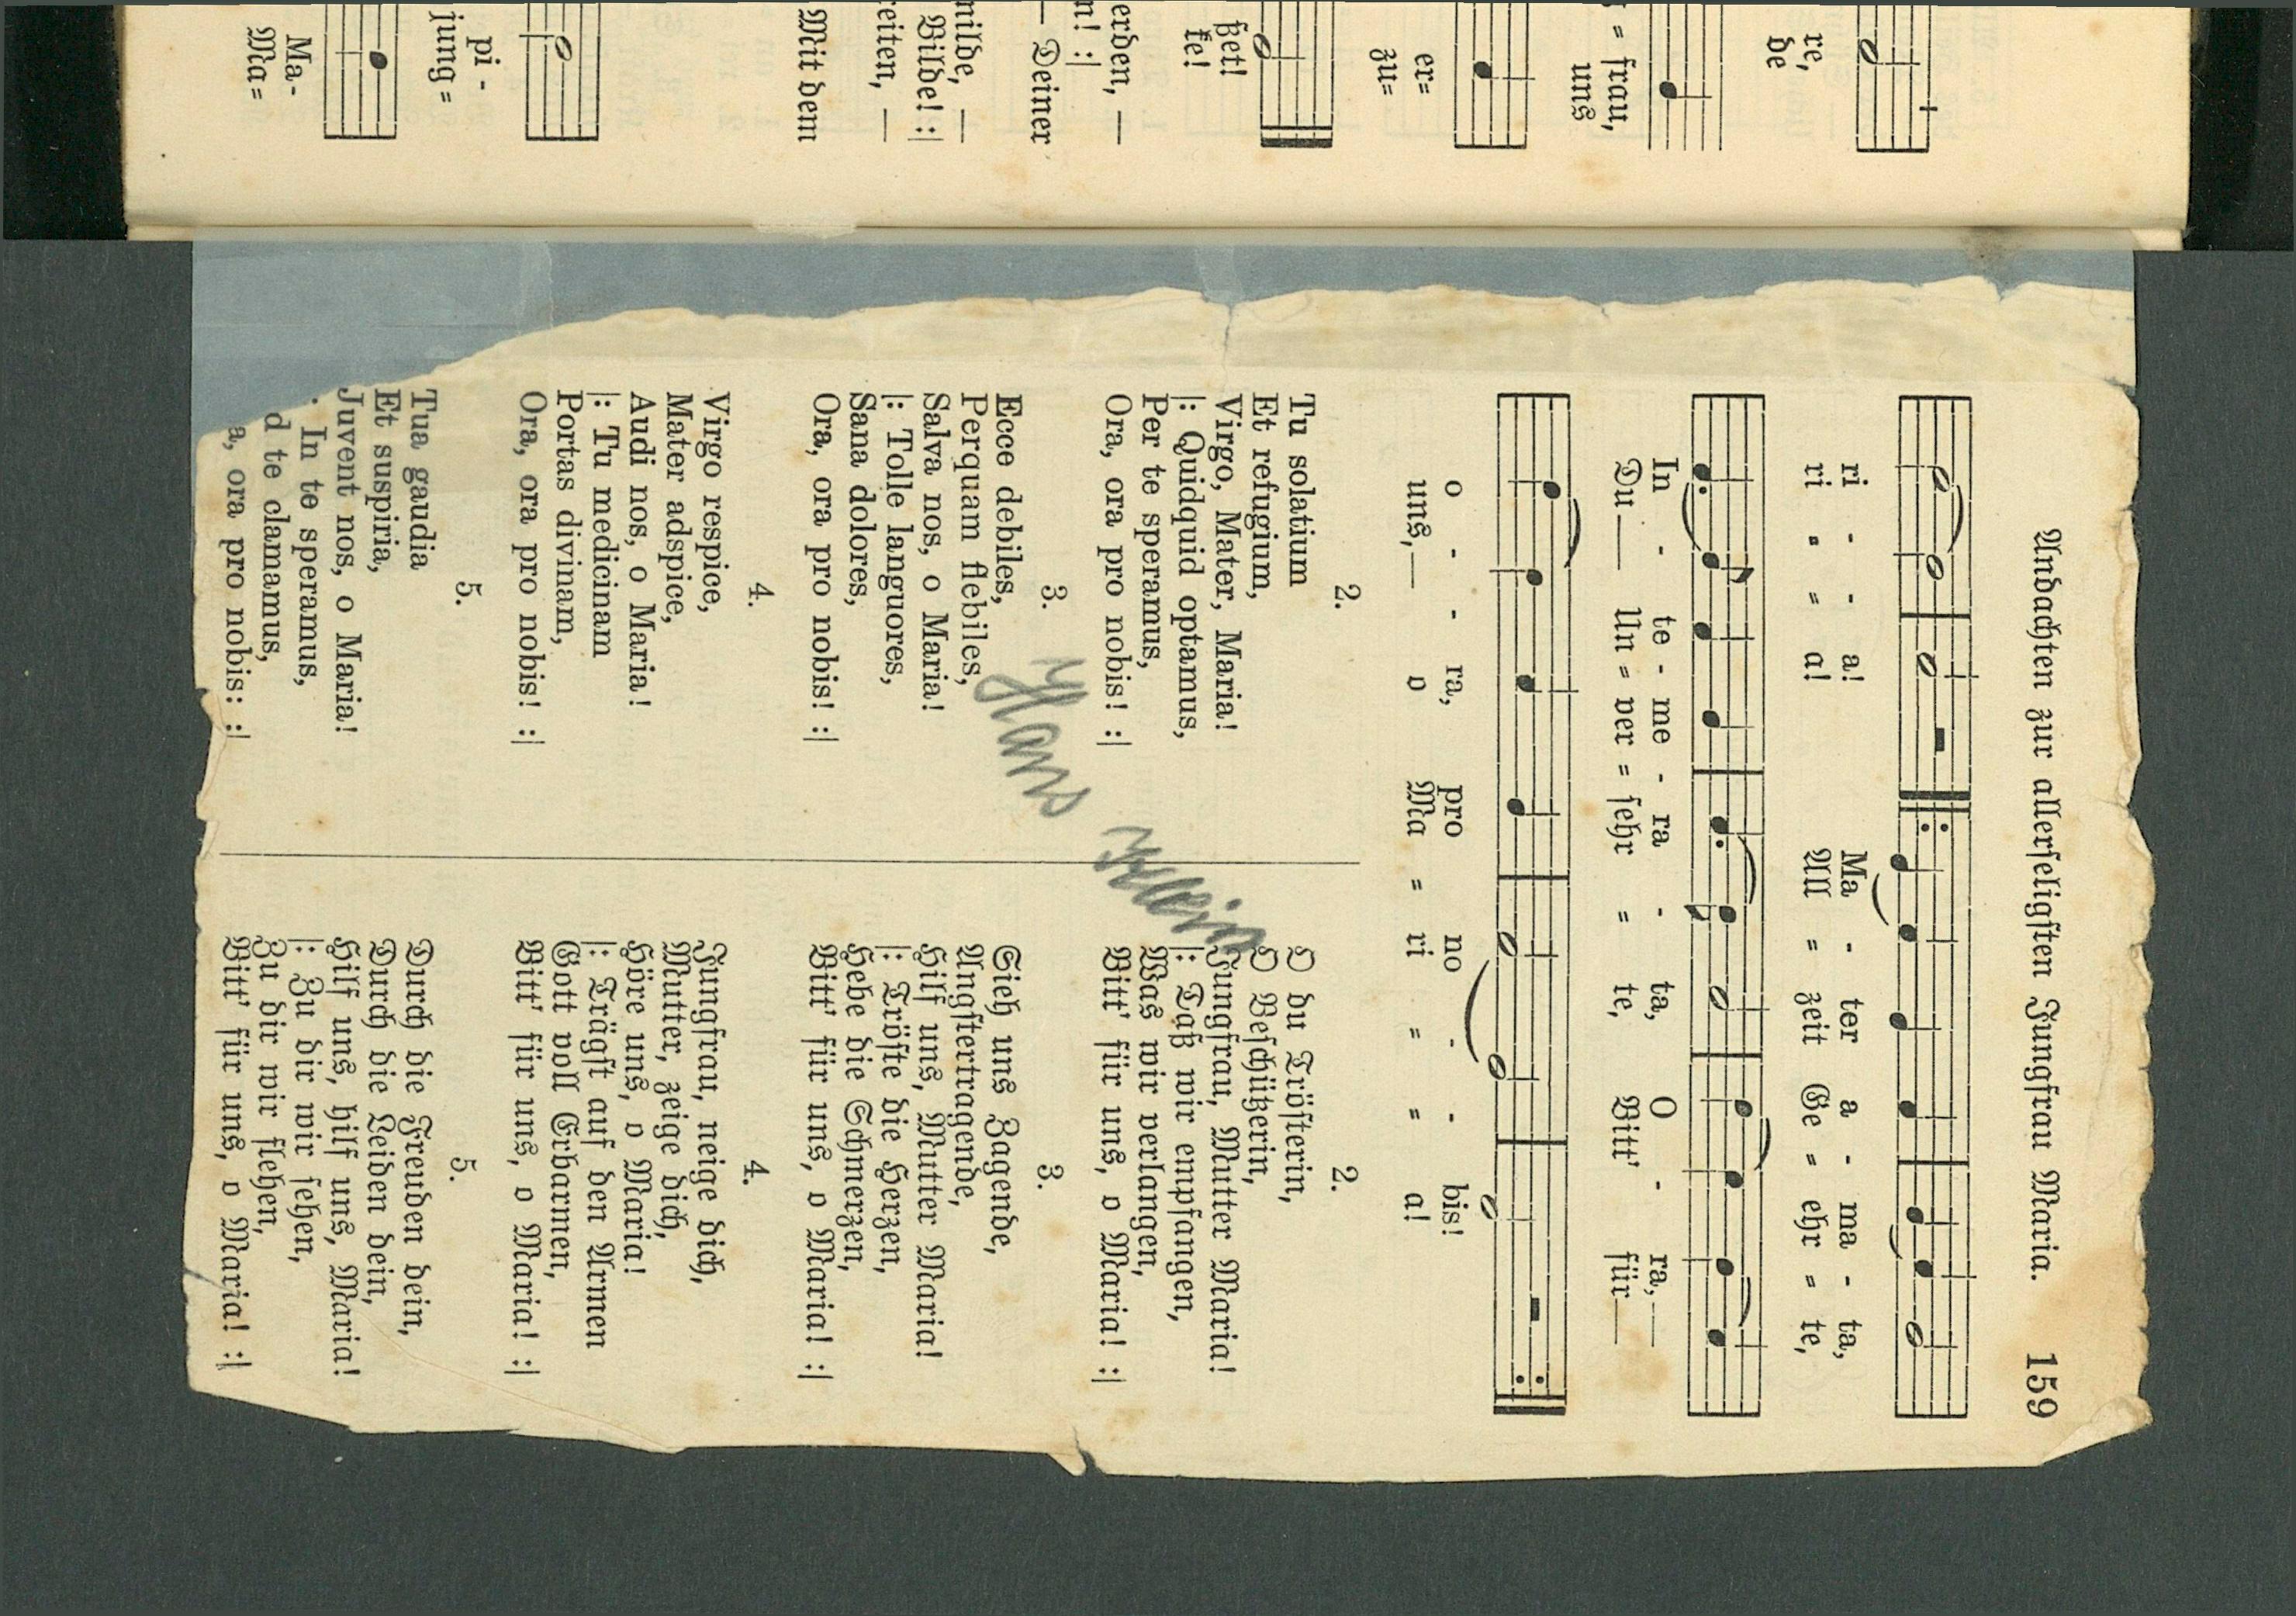 re,
de
= frau,
uns
er=
zu=
ßet!
te!
erden, —
n! :|
— Deiner
milde, —
Bilde! :|
eiten, —
Mit dem
pi -
jung =
Ma-
Ma=
Andachten zur allerseligsten Jungfrau Maria. 159
ri - - a! Ma - ter a - ma - ta,
ri = = a! All = zeit Ge = ehr = te,
In - te - me - ra - ta, O - ra,—
Du— Un = ver = sehr = te, Bitt' für—
o - - ra, pro no - - bis!
uns,— o Ma = ri = = a!
2.
Tu solatium
Et refugium,
Virgo, Mater, Maria!
|: Quidquid optamus,
Per te speramus,
Ora, ora pro nobis! :|
3.
Ecce debiles,
Perquam flebiles,
Salva nos, o Maria!
|: Tolle languores,
Sana dolores,
Ora, ora pro nobis! :|
4.
Virgo respice,
Mater adspice,
Audi nos, o Maria!
|: Tu medicinam
Portas divinam,
Ora, ora pro nobis! :|
5.
Tua gaudia
Et suspiria,
Juvent nos, o Maria!
: In te speramus,
d te clamamus,
a, ora pro nobis: :|
2.
O du Trösterin,
O Beschützerin,
Jungfrau, Mutter Maria!
|: Daß wir empfangen,
Was wir verlangen,
Bitt' für uns, o Maria! :|
3.
Sieh uns Zagende,
Angstertragende,
Hilf uns, Mutter Maria!
|: Tröste die Herzen,
Hebe die Schmerzen,
Bitt' für uns, o Maria! :|
4.
Jungfrau, neige dich,
Mutter, zeige dich,
Höre uns, o Maria!
|: Trägst auf den Armen
Gott voll Erbarmen,
Bitt' für uns, o Maria! :|
5.
Durch die Freuden dein,
Durch die Leiden dein,
Hilf uns, hilf uns, Maria!
|: Zu dir wir sehen,
Zu dir wir flehen,
Bitt' für uns, o Maria! :|
Hans